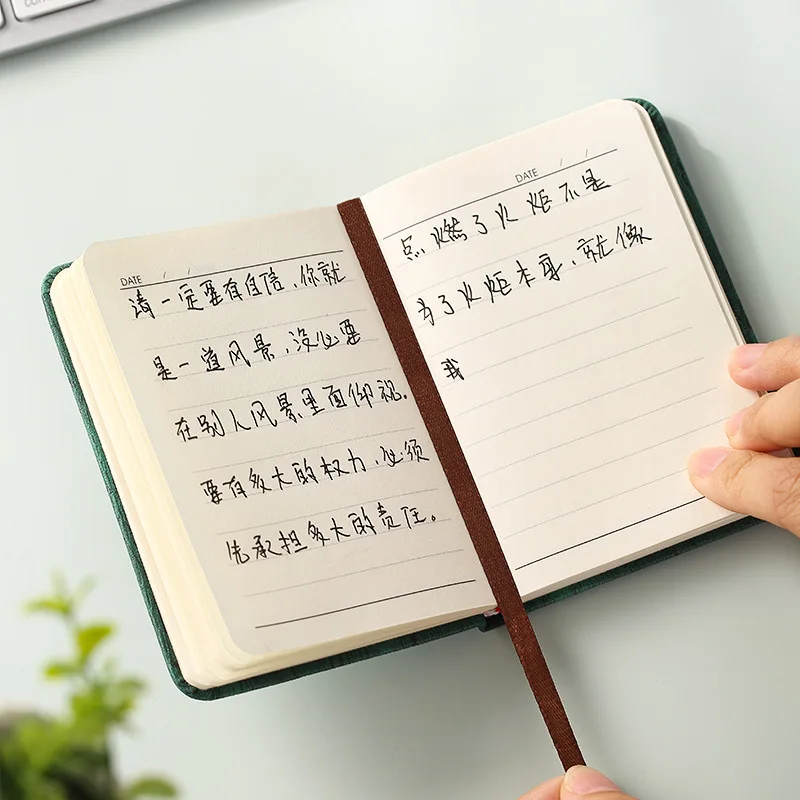 DATE / /
请一定要有自信，你就
是一道风景，没必要
在别人风景里面仰视。
要有多大的权力，必须
先承担多大的责任。
DATE / /
点燃了火炬不是
为了火炬本身，就像
我